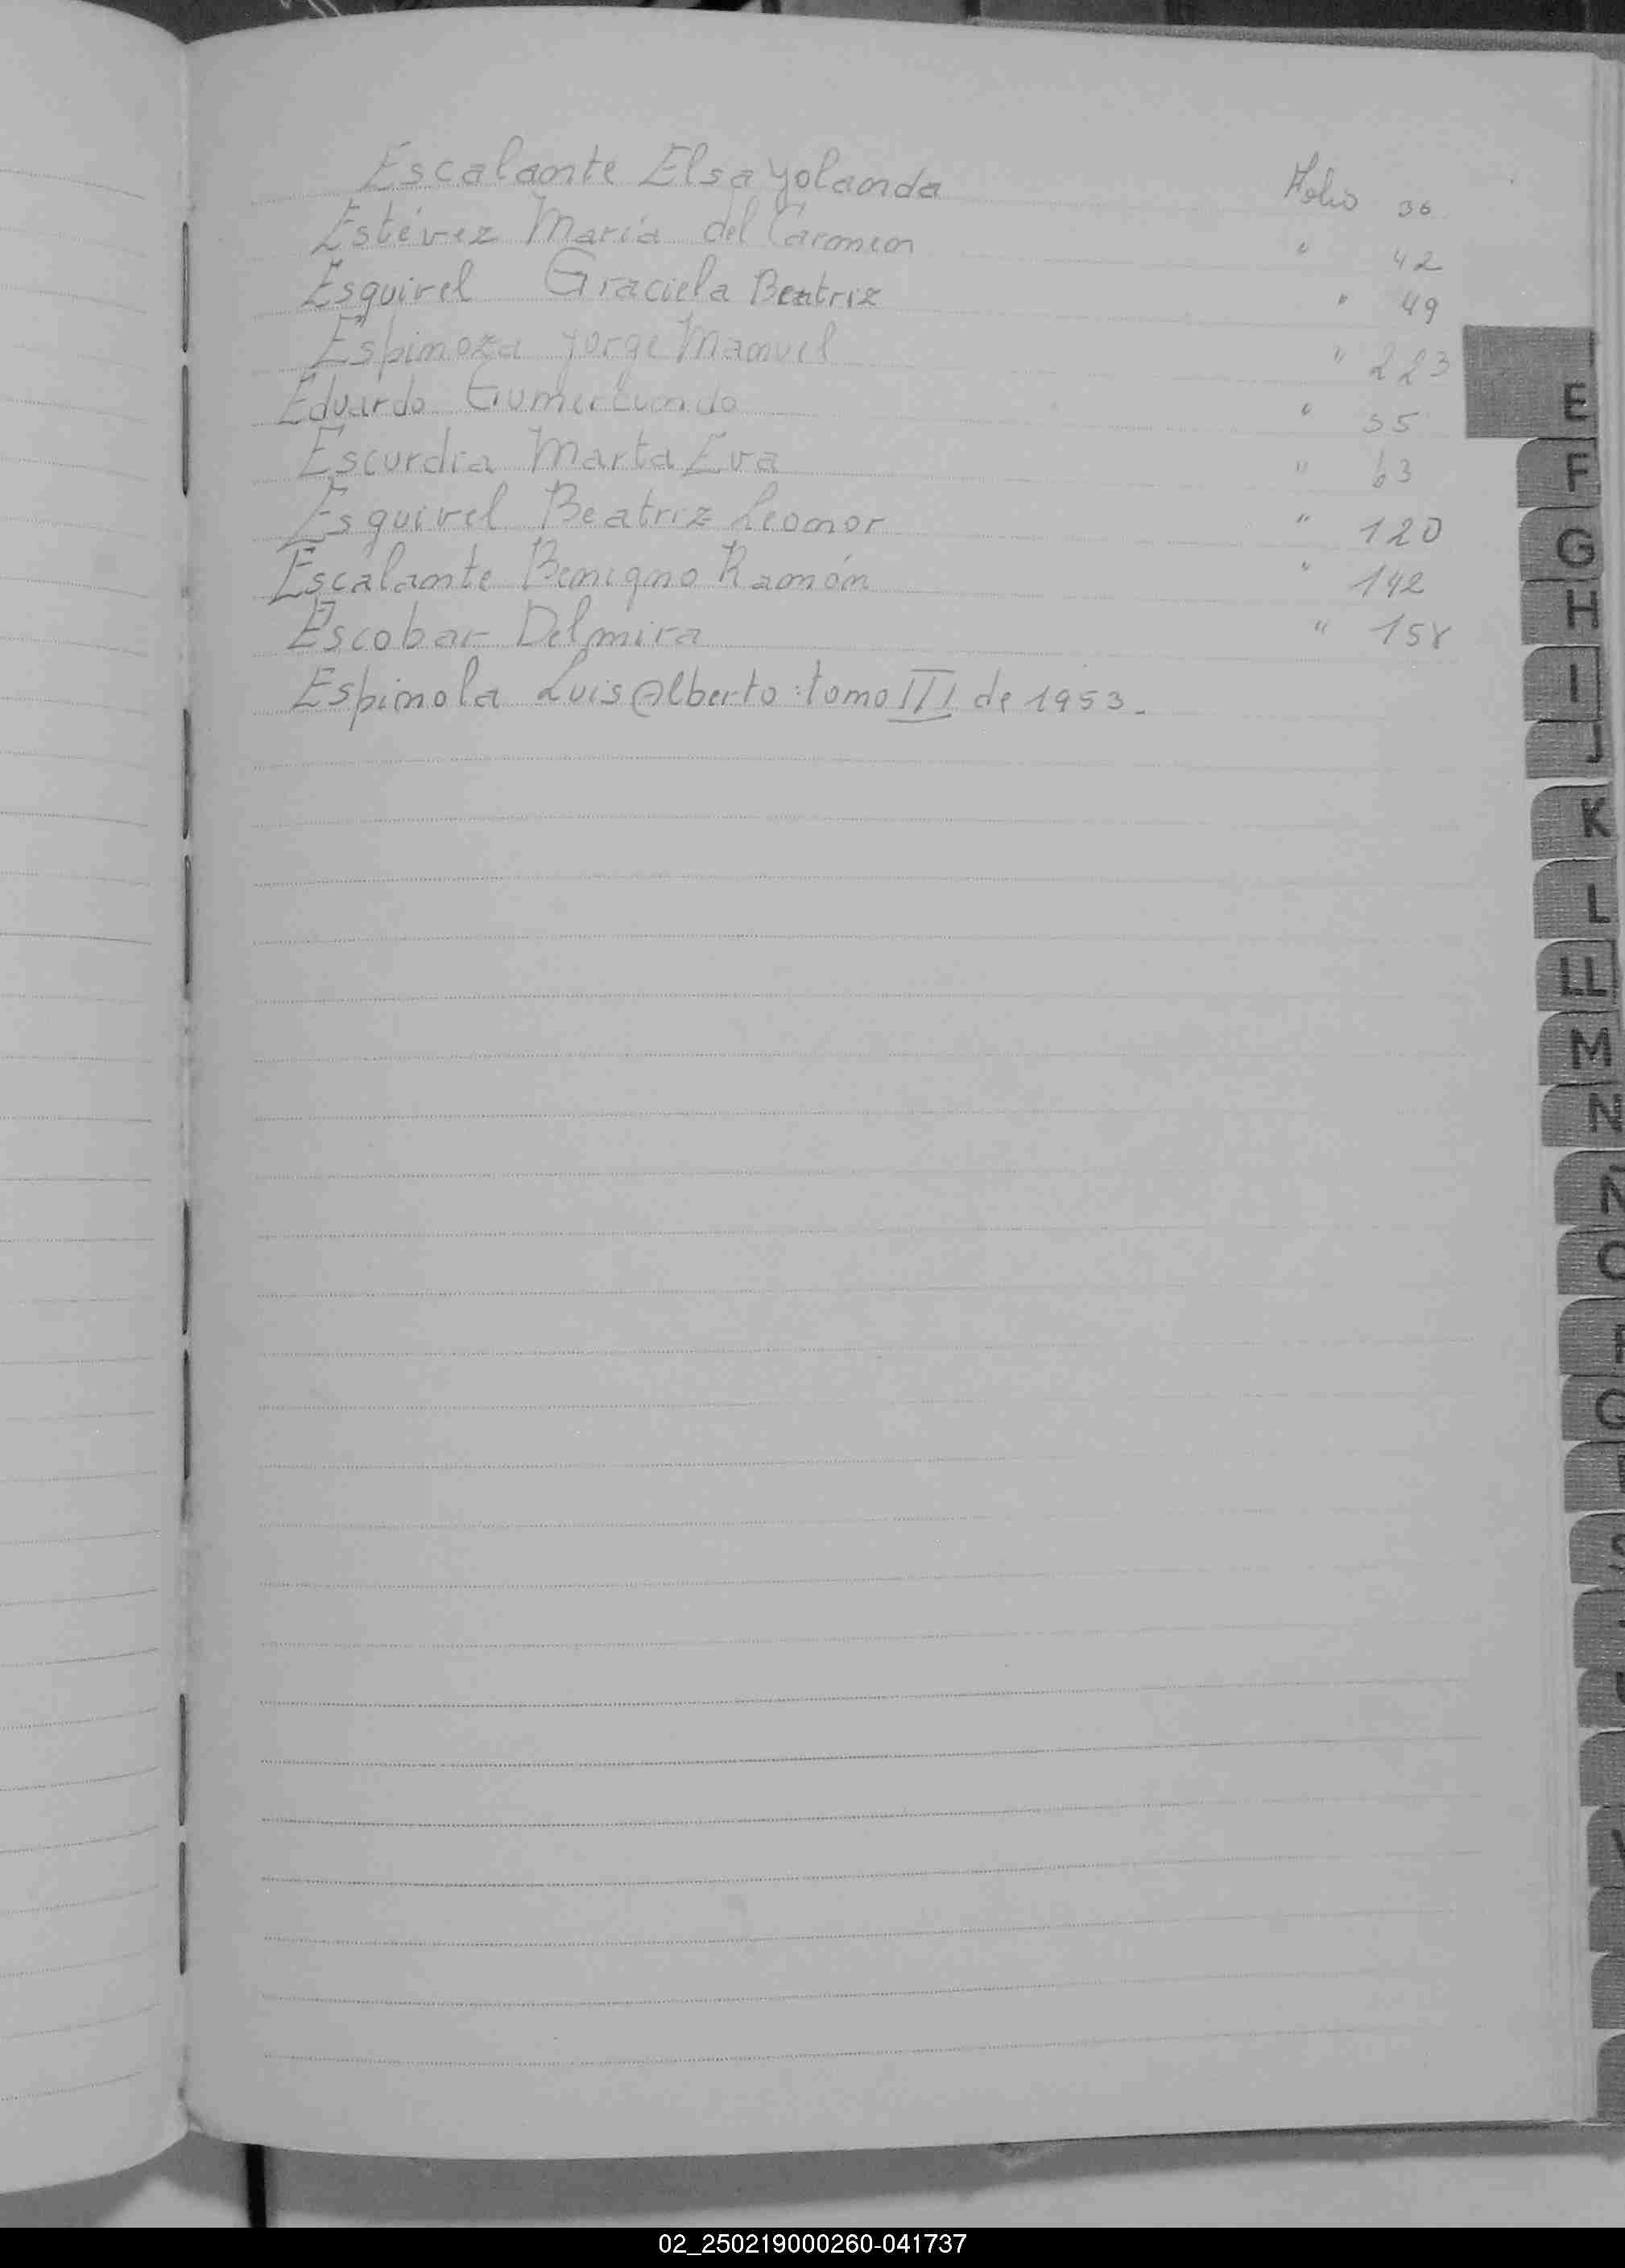 Escalante Elsa Yolanda Folio 36
Estévez María del Carmen " 42
Esquivel Graciela Beatriz " 49
Espinoza Jorge Manuel " 223
Eduardo " 55
Escurdia Marta Eva " 63
Esquivel Beatriz Leonor " 120
Escalante Benigno Ramón " 142
Escobar Delmira " 158
Espinola Luis Alberto : tomo III de 1953.
E
F
G
H
I
J
K
L
LL
M
N
Ñ
O
P
Q
S
02_250219000260-041737